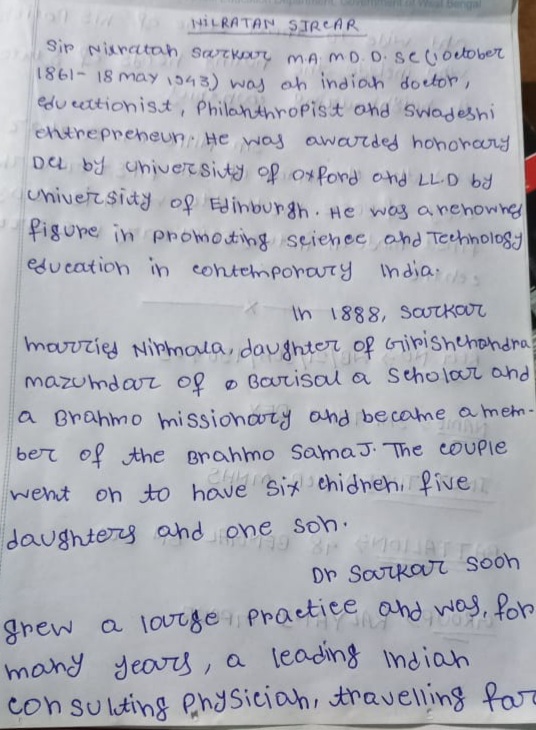 NILRATAN SIRCAR
Sir Nilratan Sarkar M.A. M.D. D.Sc (1 October
1861 - 18 May 1943) was an indian doctor,
educationist, Philanthropist and Swadeshi
entrepreneur. He was awarded honorary
DCL by university of oxford and LL.D by
university of Edinburgh. He was a renowned
figure in promoting science and Technology
education in contemporary India.
In 1888, Sarkar
married Nirmala, daughter of Girishchandra
mazumdar of Barisal a Scholar and
a Brahmo missionary and became a mem-
ber of the Brahmo Samaj. The couple
went on to have six chidren, five
daughters and one son.
Dr Sarkar soon
grew a large practice and was, for
many years, a leading Indian
consulting Physician, travelling far